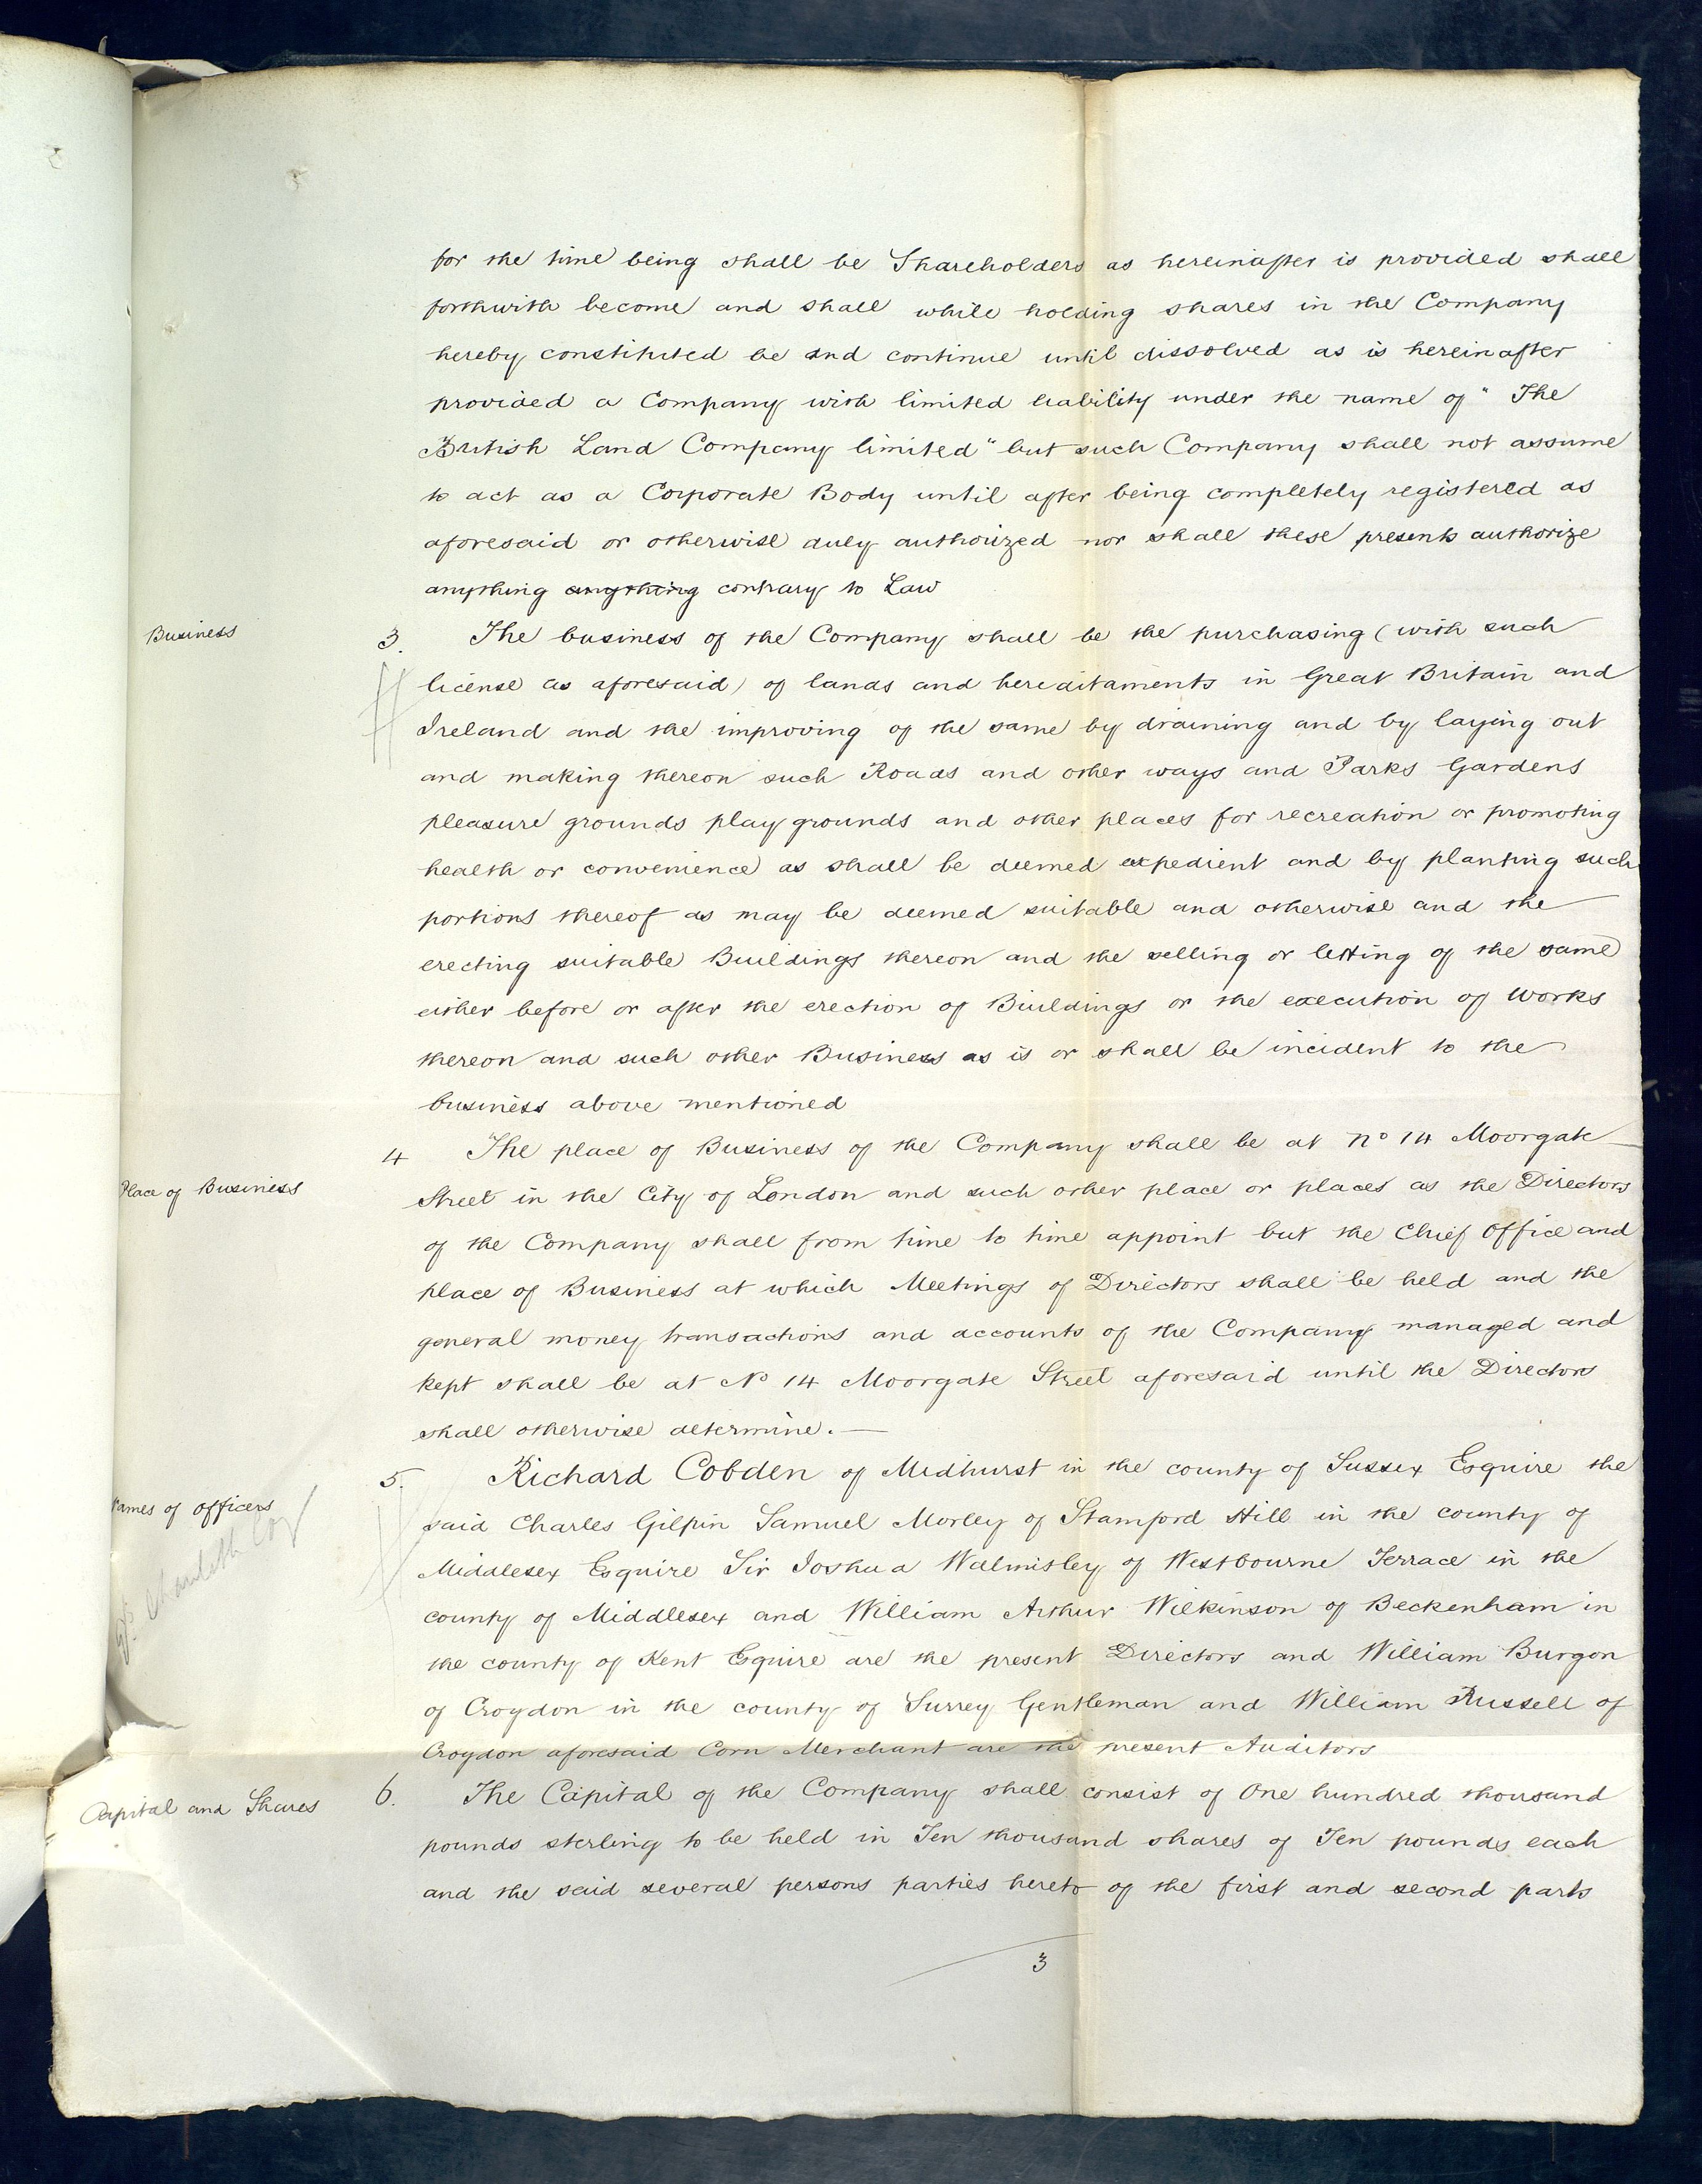 for the time being shall be Shareholders as hereinafter is provided shall
forthwith become and shall while holding shares in the Company
hereby constituted be and continue until dissolved as is hereinafter
provided a Company with limited liability under the name of "The
British Land Company limited" but such Company shall not assume
to act as a Corporate Body until after being completely registered as
aforesaid or otherwise duly authorized nor shall these presents authorize
anything anything contrary to Law
Business
3. The business of the Company shall be the purchasing (with such
license as aforesaid) of lands and hereditaments in Great Britain and
Ireland and the improving of the same by draining and by laying out
and making thereon such Roads and other ways and Parks Gardens
pleasure grounds play grounds and other places for recreation or promoting
health or convenience as shall be deemed expedient and by planting such
portions thereof as may be deemed suitable and otherwise and the
erecting suitable Buildings thereon and the selling or letting of the same
either before or after the erection of Buildings or the execution of Works
thereon and such other Business as is or shall be incident to the
business above mentioned
Place of Business
4 The place of Business of the Company shall be at No 14 Moorgate
Street in the City of London and such other place or places as the Directors
of the Company shall from time to time appoint but the Chief Office and
place of Business at which Meetings of Directors shall be held and the
general money transactions and accounts of the Company managed and
kept shall be at No 14 Moorgate Street aforesaid until the Directors
shall otherwise determine.—
Names of Officers
5. Richard Cobden of Midhurst in the county of Sussex Esquire the
said Charles Gilpin Samuel Morley of Stamford Hill in the county of
Middlesex Esquire Sir Joshua Walmisley of Westbourne Terrace in the
county of Middlesex and William Arthur Wilkinson of Beckenham in
the county of Kent Esquire are the present Directors and William Burgon
of Croydon in the county of Surrey Gentleman and William Russell of
Croydon aforesaid Corn Merchant are the present Auditors
Capital and Shares
6. The Capital of the Company shall consist of One hundred thousand
pounds sterling to be held in Ten thousand shares of Ten pounds each
and the said several persons parties hereto of the first and second parts
3